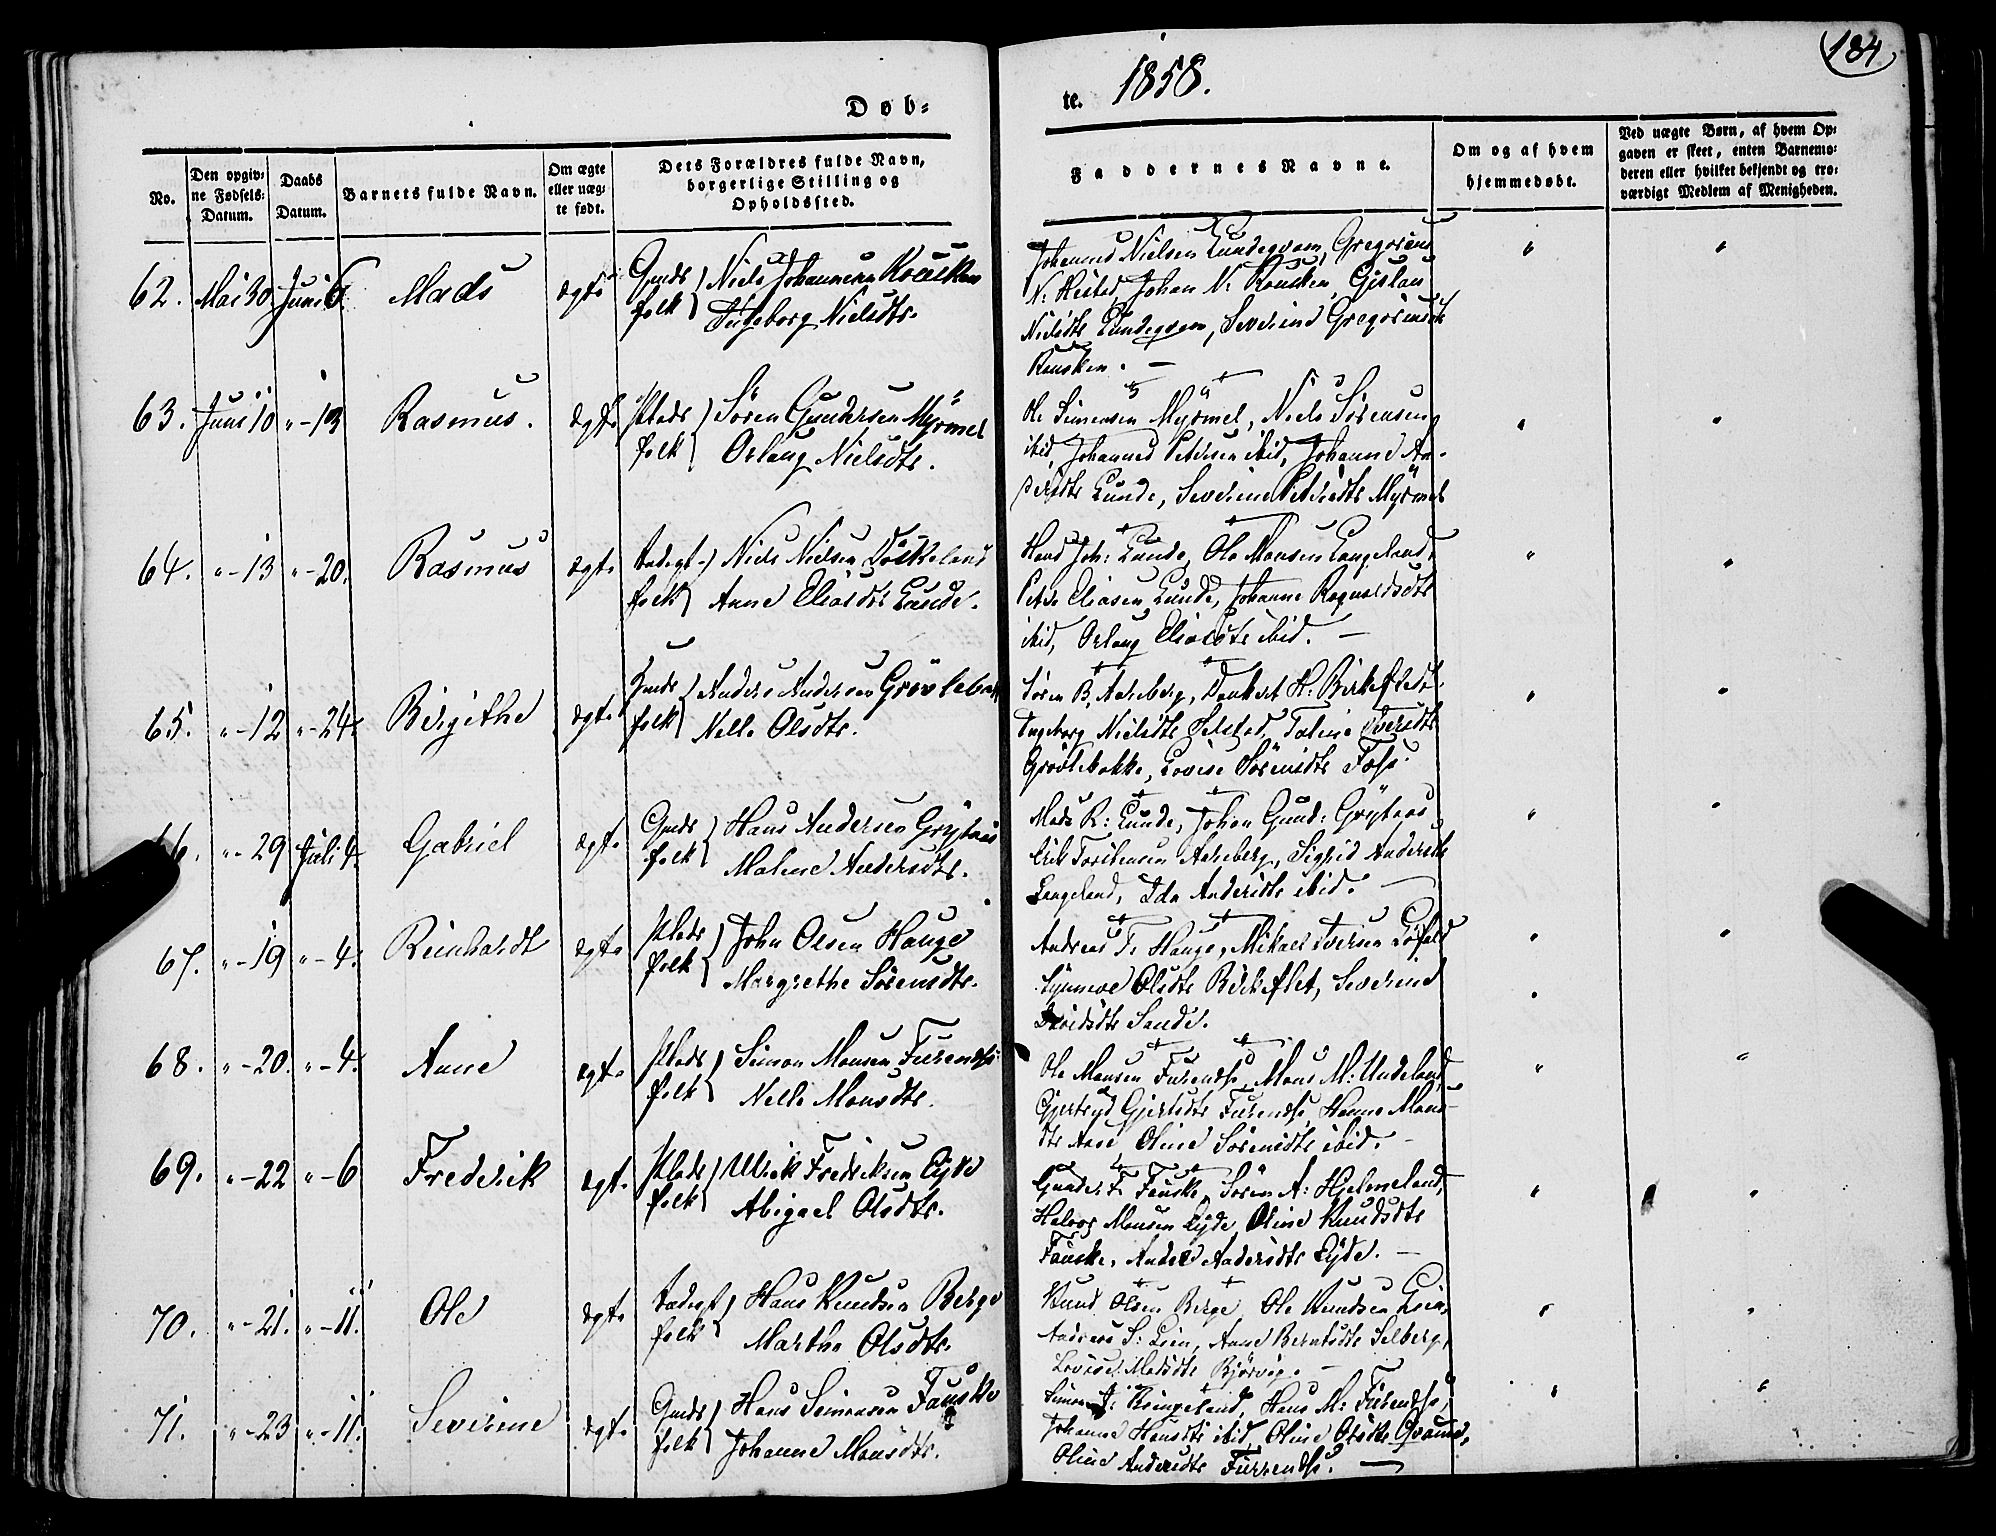 184
Døb-
te. 1858.
No.
Den opgiv-
ne Fødsels-
Datum.
Daabs
Datum.
Barnets fulde Navn.
Om ægte
eller uæg-
te født.
Dets Forældres fulde Navn,
borgerlige Stilling og
Opholdssted.
Faddernes Navne.
Om og af hvem
hjemmedøbt.
Ved uægte Børn, af hvem Op-
gaven er skeet, enten Barnemo-
deren eller hvilket bekjendt og tro-
værdigt Medlem af Menigheden.
62. Mai 30. Juni 6 Mads ægte Gmds folk Niels Johannesen Rousken
Ingeborg Nielsdtr.
Johannes Nielsen Lundeqvam, Gregorius
N. Hestad, Johan N: Rousken, Gislau
Nielsdtr Lundeqvam, Severine Gregoriusdtr
Rousken. —
63. Juni 10 " - 13 Rasmus. ægte Plads folk Søren Gundersen Myrmel
Orlaug Nielsdtr.
Ole Simensen Myrmel, Niels Sørensen
ibid, Johannes Petersen ibid, Johanne An-
dersdtr Lunde, Severine Petersdtr Myrmel
64. " - 13 " - 20. Rasmus ægte Inderst folk Niels Nielsen
Anne Eliasdtr Lunde.
Hans Joh: Lunde, Ole Monsen Langeland,
Peter Eliasen Lunde, Johanne Ragnvaldsdtr
ibid, Orlaug Eliasdtr ibid. —
65. " - 12 " - 24. Birgithe ægte Gmds folk Anders Andersen Grøvlebak
Nelle Olsdtr.
Søren B. Askeberg, Dankert H: Birkeflet
Ingeborg Nielsdtr Helstad, Taline Iversdtr
Grøvlebakke, Lovise Sørensdtr Foss.
66. " - 29 Juli 4. Gabriel ægte Gmds folk Hans Andersen Grytaas
Malene Andersdtr.
Mads R: Lunde, Johan Gund: Grytaas
Erik Torstensen Askeberg, Sigrid Andersdtr
Langeland, Ida Andersdtr ibid. —
67. " - 19 " - 4. Reinhardt ægte Plads folk John Olsen Hauge
Margrethe Sørensdtr.
Andreas T: Hauge, Mikael Iversen
Synneve Olsdtr Birkeflet, Severine
Davidsdtr Sande.
68. " - 20. " - 4. Anne ægte Plads folk Simon Monsen Furenæs
Nelle Monsdtr.
Ole Monsen Furenæs, Mons M: Undeland,
Gjertryd Gjertsdtr Furenæs, Hanna Mons-
dtr Aase Oline Sørensdtr ibid. —
69. " - 22 " - 6 Frederik ægte Plads folk Ulrik Fredriksen Eyde
Abigael Olsdtr.
Gunder F. Fauske, Søren A: Hjelmeland,
Halvor Monsen Eyde, Oline Knudsdtr
Fauske, Andrea Andersdtr Eyde. —
70. " - 21. " - 11. Ole ægte Inderst folk Hans Knudsen Berge
Marthe Olsdtr.
Knud Olsen Berge, Ole Knudsen Lien,
Andreas S: Lien, Anne Berntsdtr Solberg,
Lovise Madsdtr Bjørvig. —
71. " - 23 " - 11. Severine ægte Gmds folk Hans Simonsen Fauske
Johanne Monsdtr.
Simon J: Ringeland, Hans M: Furenæs,
Johanne Hansdtr ibid, Oline Olsdtr Qvamme,
Oline Andersdtr Furenæs. —